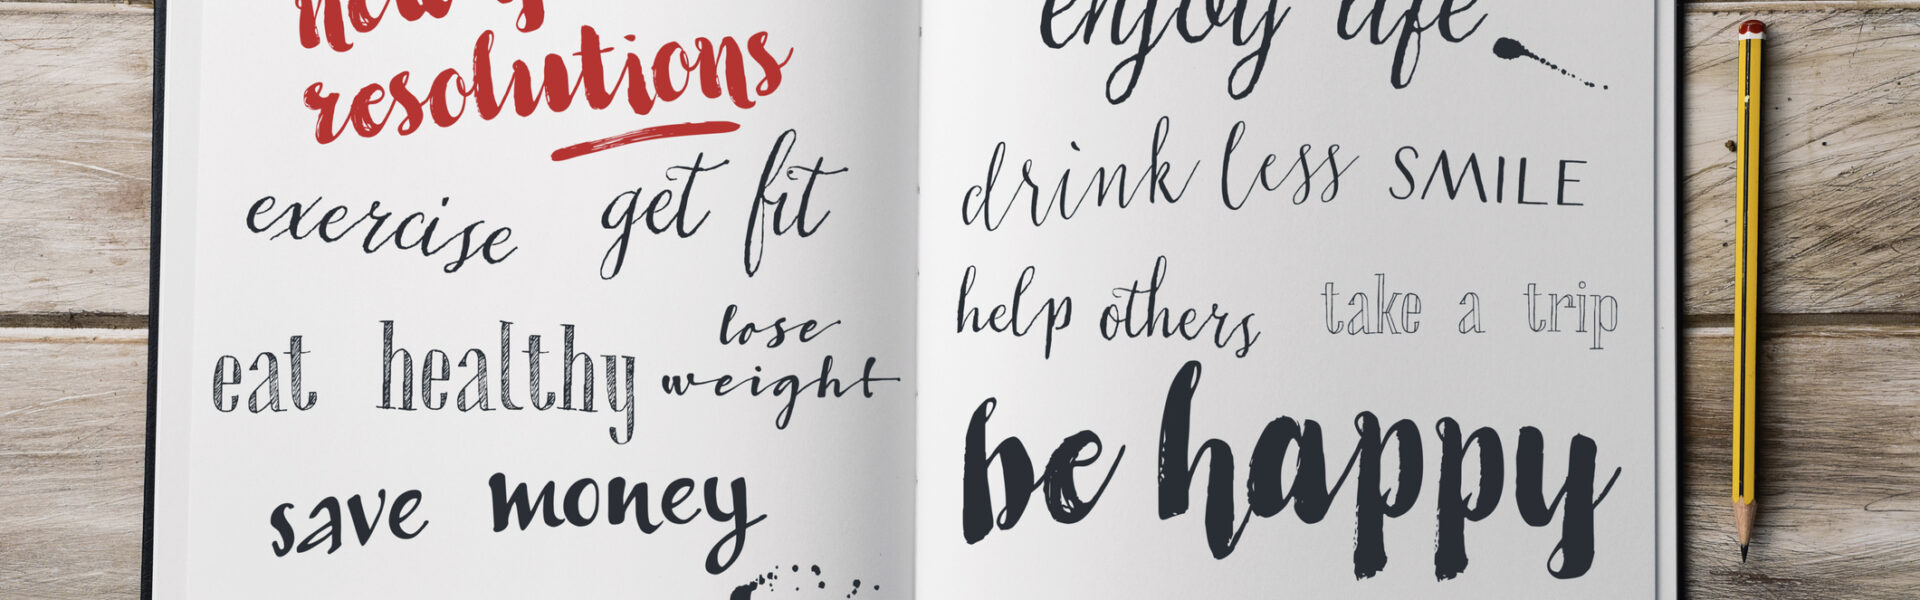 resolutions
exercise get fit
eat healthy lose weight
save money
enjoy life
drink less SMILE
help others take a trip
be happy